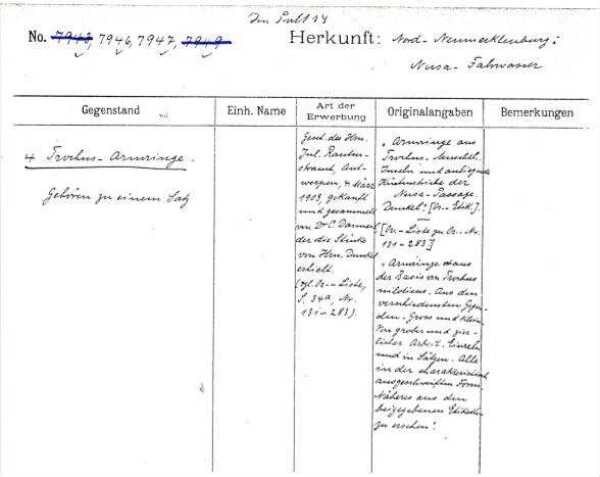 Im Pult 14
No. 7943, 7946, 7947, 7949
Herkunft: Nord-Neumecklenburg:
Nusa-Fahrwasser
Gegenstand
Einh. Name
Art der
Erwerbung
Originalangaben
Bemerkungen
4 Trochus-Armringe.
Gehören zu einem Satz
Gesch. des Hrn.
Jul. Rauten-
strauch, Ant-
werpen, 4 März
1903, gekauft
und gesammelt
von Dr. O. Danneil
der die Stücke
von Hrn. Dunkel
erhielt.
(vgl. Or.-Liste,
S. 34a, No.
131-283).
"Armringe aus
Trochus-Muschel.
Inseln und anliegende
Küstenstriche der
Nusa-Passage.
Dunkel". [Or.-Etik.].
[Or.-Liste zu Or.-No.
131-283]
"Armringe aus
der Basis von Trochus
niloticus. Aus den
verschiedensten Gegen-
den. Gross und klein.
Von grober und zier-
licher Arbeit. Einzeln
und in Sätzen. Alle
in der charakteristisch
ausgeschweiften Form.
Näheres aus den
beigegebenen Etiketten
zu ersehen".